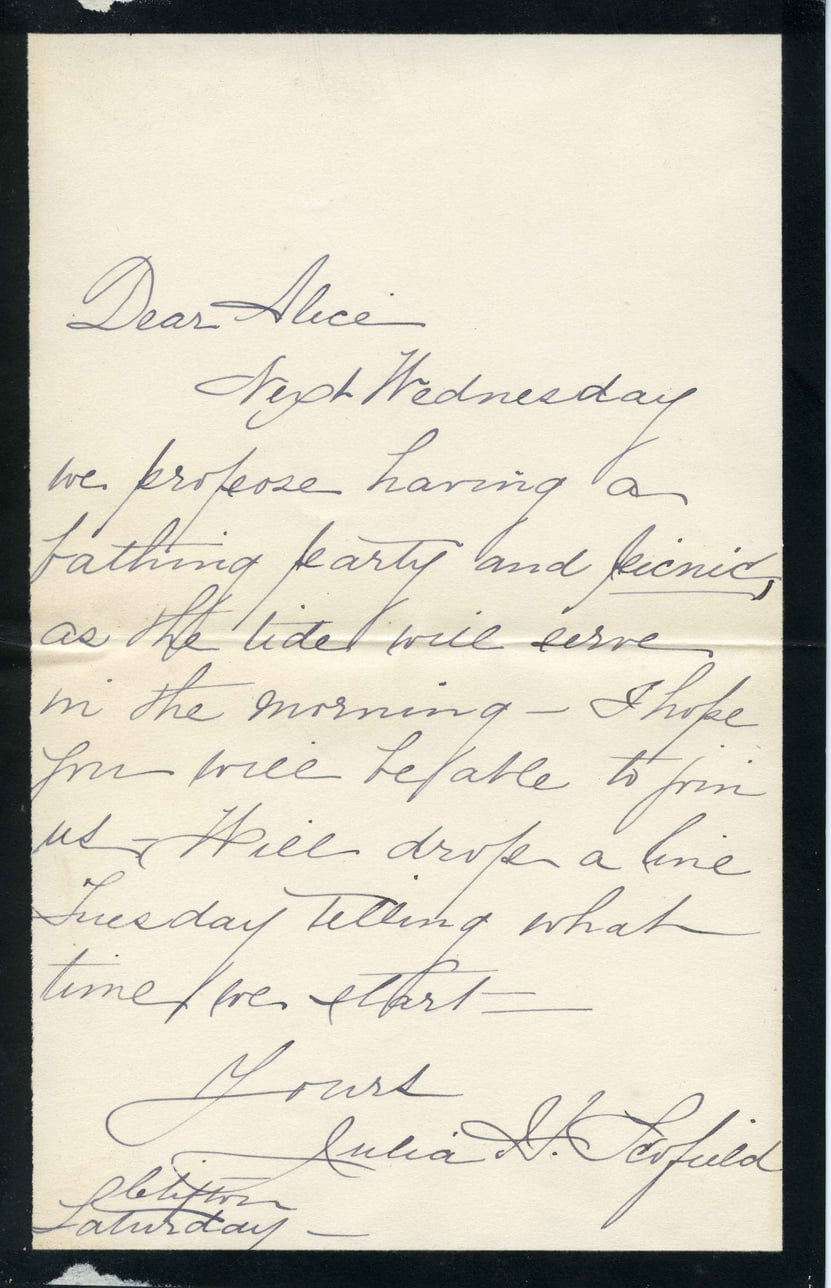 Dear Alice
Next Wednesday
we propose having a
bathing party and picnic,
as the tide will serve
in the morning – I hope
you will be able to join
us – Will drop a line
Tuesday telling what
time we start –
Yours
Julia H. Scofield
Clifton
Saturday –